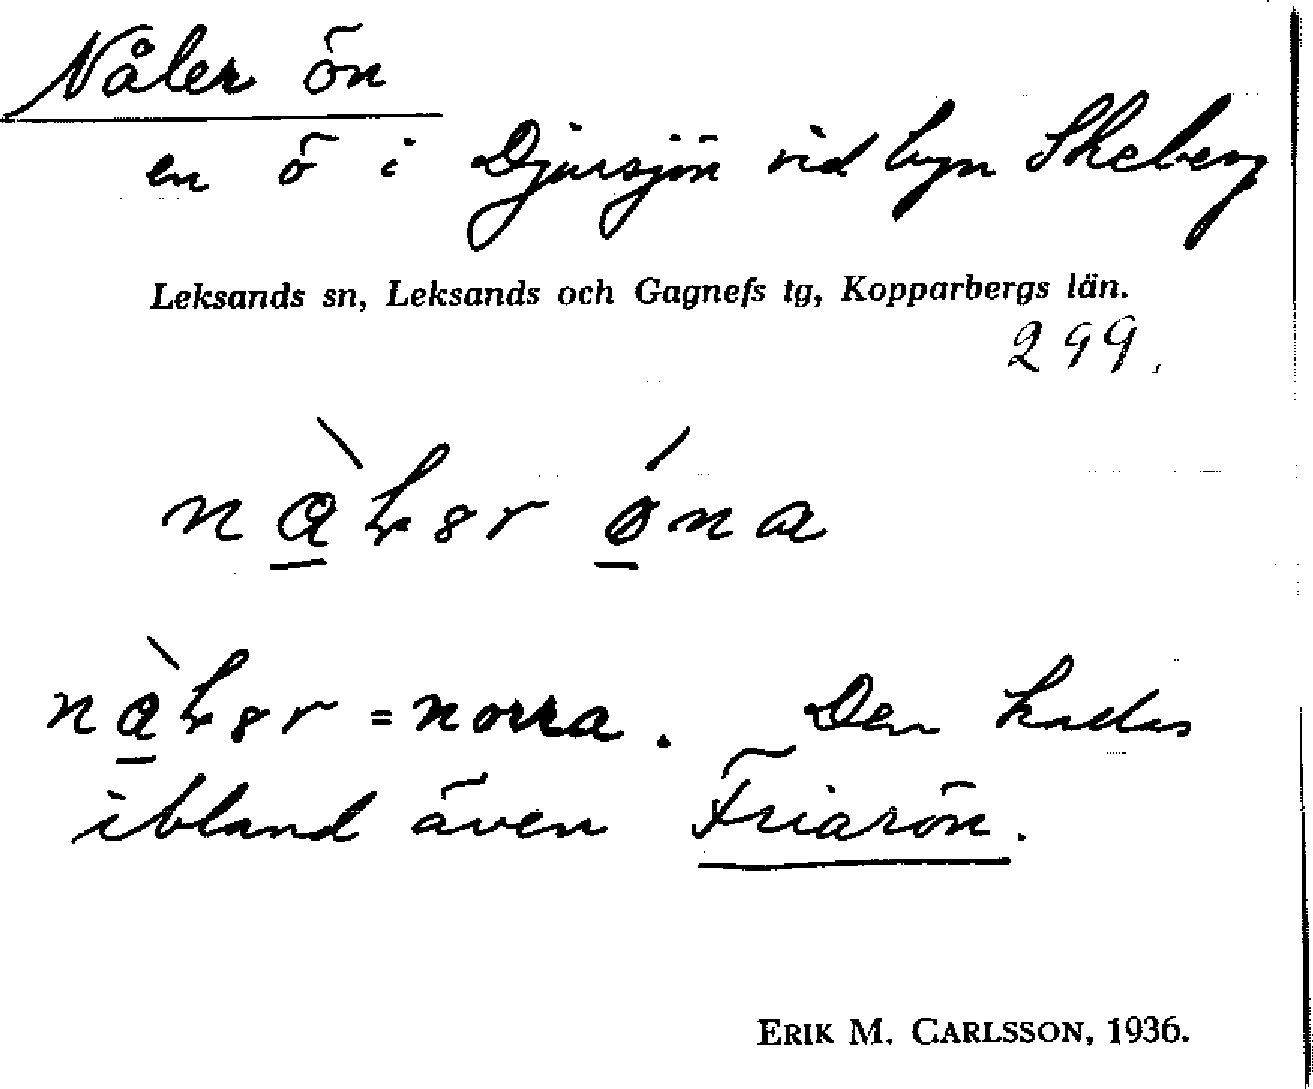 Nåler ön
en ö i Djursjön vid byn Skeberg
Leksands sn, Leksands och Gagnefs tg, Kopparbergs län.
299.
= norra. Den kallas
ibland även Friarön.
ERIK M. CARLSSON, 1936.